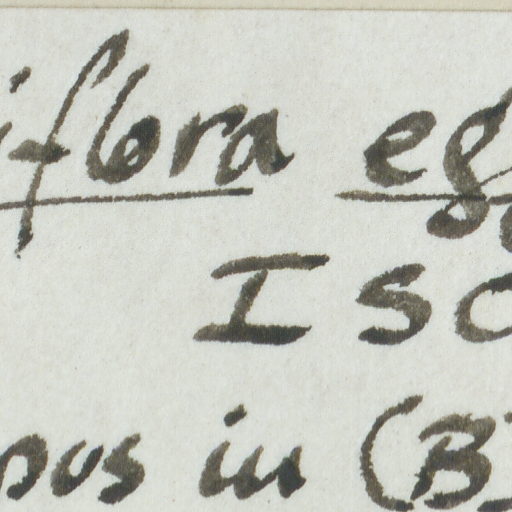 iflora eg
ISO
pus in (B